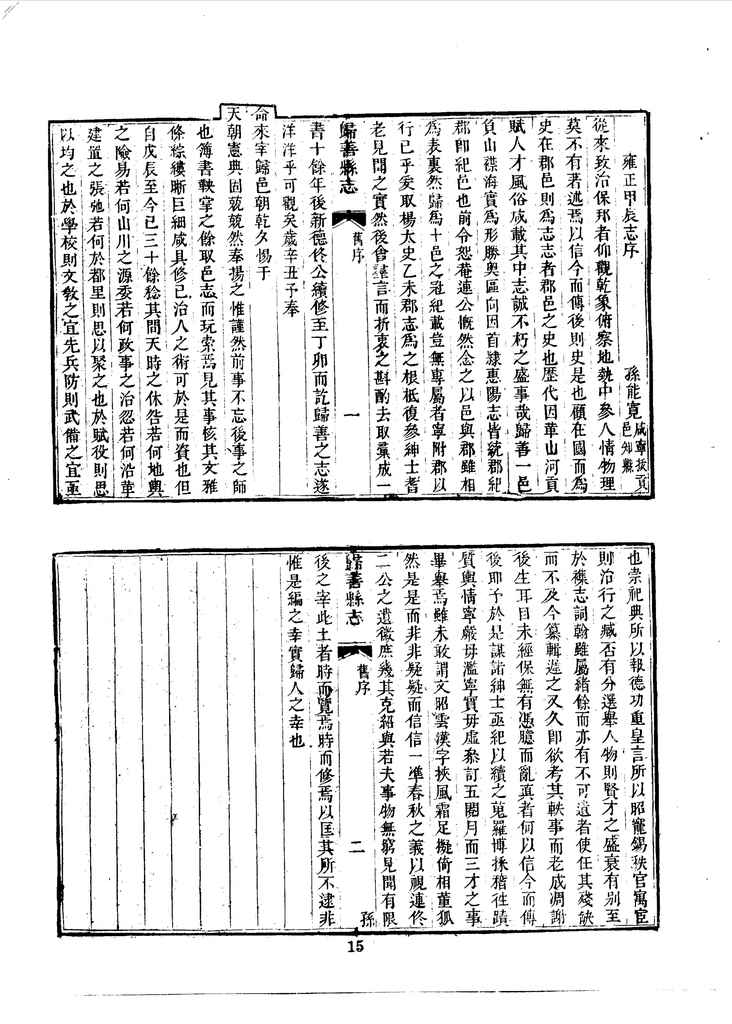 雍正甲辰志序
孫能寬咸寧拔貢邑知縣
從來致治保邦者仰觀乾象俯察地勢中參人情物理
莫不有著述焉以信今而傳後則史是也顧在國而為
史在郡邑則為志志者郡邑之史也歷代因革山河貢
賦人才風俗咸載其中志誠不朽之盛事哉歸善一邑
負山襟海實為形勝奧區向因首隷惠陽志皆統郡紀
郡卽紀邑也前令恕菴連公慨然念之以邑與郡雖相
為表裏然歸為十邑之冠紀載豈無專屬者寧附郡以
行已乎爰取楊太史乙未郡志為之根柢復參紳士耆
老見聞之實然後會讜言而折衷之斟酌去取彙成一
歸善縣志
舊序
一
書十餘年後新德佟公續修至丁卯而訖歸善之志遂
洋洋乎可觀矣歲辛丑予奉
命來宰歸邑朝乾夕惕于
天朝憲典固兢兢然奉揚之惟謹然前事不忘後事之師
也簿書鞅掌之餘取邑志而玩索焉見其事核其文雅
條綜縷晰巨細咸具修己治人之術可於是而資也但
自戊辰至今已三十餘稔其間天時之休咎若何地輿
之險易若何山川之源委若何政事之治忽若何沿革
建置之張弛若何於都里則思以聚之也於賦役則思
以均之也於學校則文敎之宜先兵防則武備之宜亟
也崇祀典所以報德功重皇言所以昭寵錫秩官寓宦
則治行之臧否有分選舉人物則賢才之盛衰有别至
於襍志詞翰雖屬緒餘而亦有不可遺者使任其殘缺
而不及今纂輯遲之又久卽欲考其軼事而老成凋謝
後生耳目未經保無有憑臆而亂眞者何以信今而傳
後耶予於是謀諸紳士亟紀以續之蒐羅博採稽往蹟
質輿情寧嚴毋濫寧實毋虛叅訂五閱月而三才之事
畢舉焉雖未敢謂文昭雲漢字挾風霜足擬倚相董狐
然是是而非非疑疑而信信一凖春秋之義以視連佟
二公之遺徽庶幾其克紹與若夫事物無窮見聞有限
歸善縣志
舊序
二
孫
後之宰此土者時而覽焉時而修焉以匡其所不逮非
惟是編之幸實歸人之幸也
15